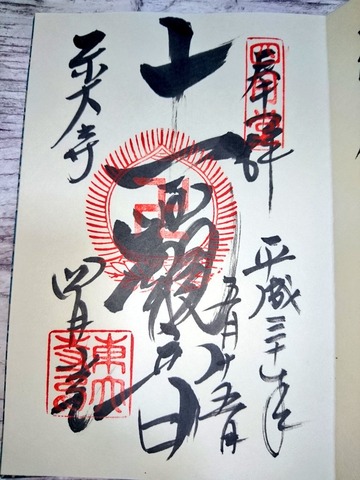 奉拝
平成三十年
五月十五日
十一面観音
東大寺
四月堂
東大寺